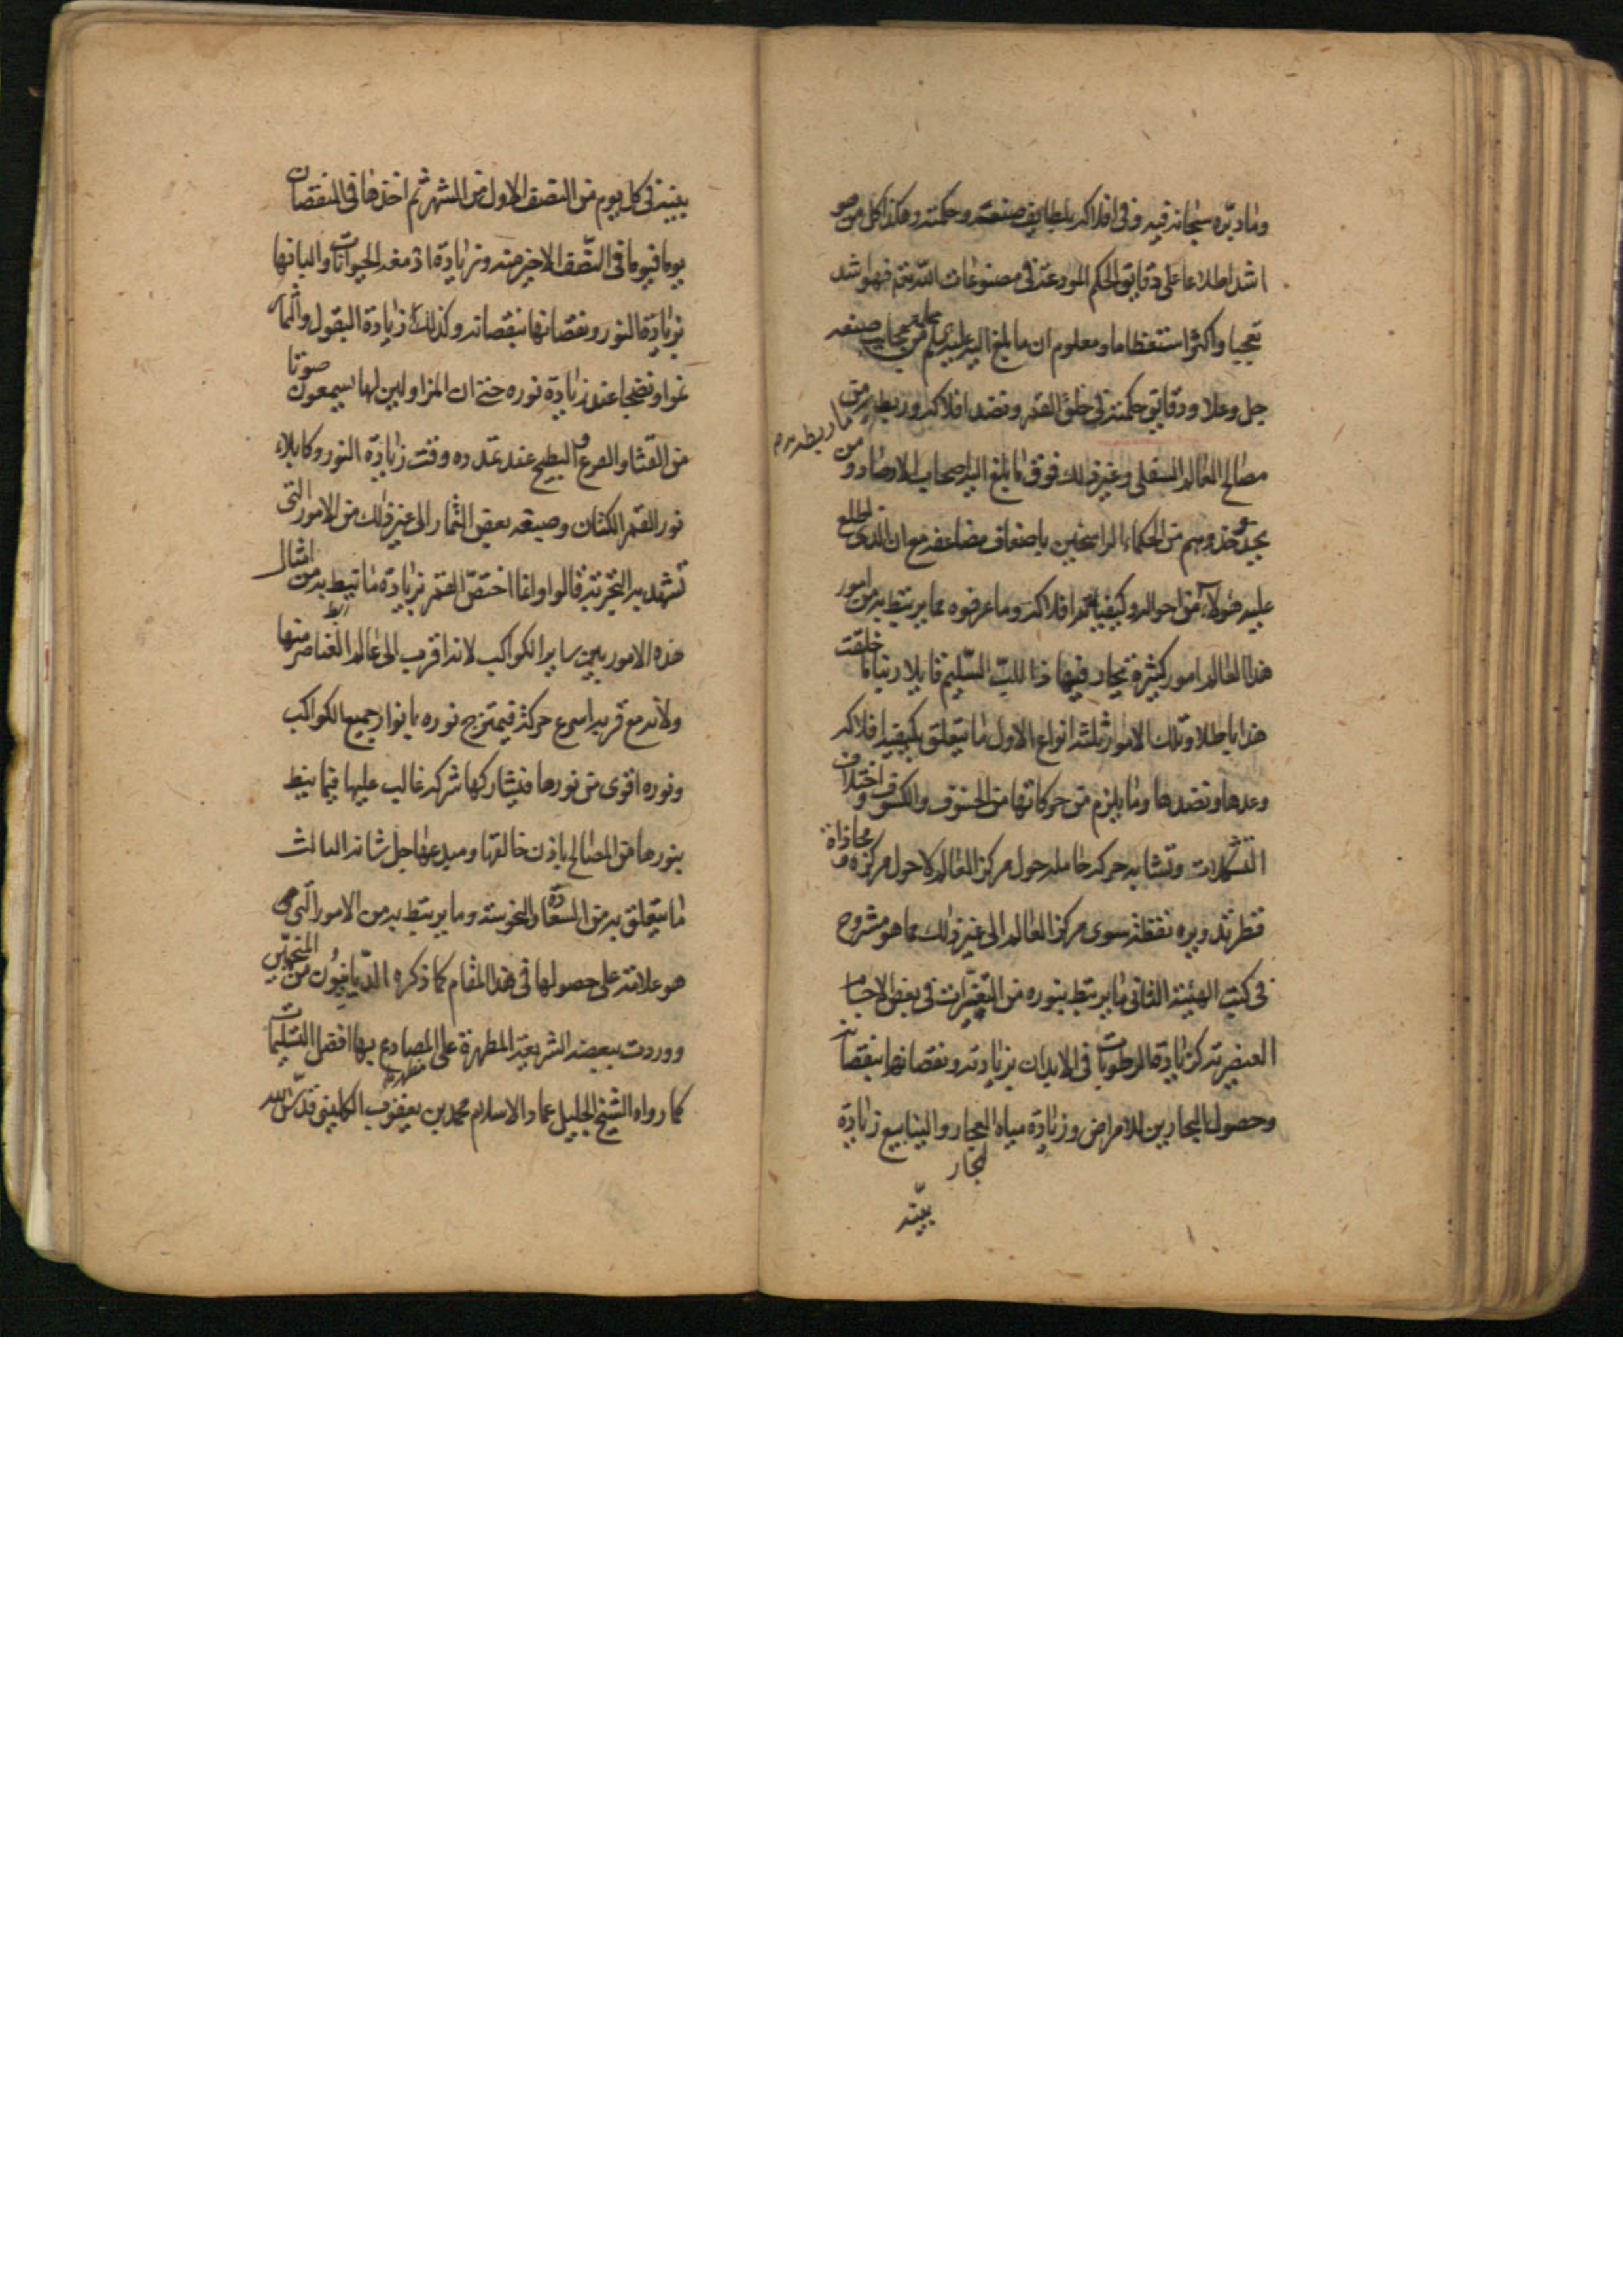 وما دبره سبحانه فيه وفى افلاكه بلطايف صنعته وحكمته وهكذا كل من هو
اشد اطلاعا على دقايق الحكم المودعة فى مصنوعات الله تعم فهو اشد
تعجبا واكثر استعظاما ومعلوم ان ما بلغ اليه علمه من عجايب صنعه
جل وعلا ودقايق حكمته فى خلق القمر ونضد افلاكه وربطه ما ربطه به من
مصالح العالم السفلى وغير ذلك فوق ما بلغ اليه اصحاب الارصاد ومن
يحذو حذوهم من الحكماء الراسخين باضعاف مضاعفه مع ان الذى اطلع
عليه هؤلاء من احواله وكيفيات افلاكه وما عرفوه مما يرتبط به من امور
هذا العالم امور كثيرة يحار فيها ذا اللب السليم قايلا ربنا ما خلقت
هذا باطلا وتلك الامور ثلثة انواع الاول ما يتعلق بكيفية افلاكه
وعدها ونضدها وما يلزم من حركاتها من الخسوف والكسوف واختلاف
التشكلات وتشابه حركة حامله حول مركز العالم لا حول مركزه ومحاذاة
قطر تدويره نقطة سوى مركز العالم الى غير ذلك مما هو مشروح
فى كتب الهيئة الثانى ما يرتبط بنوره من التغيرات فى بعض الاجسام
العنصرية كزيادة الرطوبات فى الابدان بزيادته ونقصانها بنقصانه
وحصول البحارين للامراض وزيادة مياه البحار والينابيع زيادة
بينه
بينة فى كل يوم من النصف الاول من الشهر ثم اخذها فى النقصان
يوما فيوما فى النصف الاخير منه وزيادة ادمغة الحيوانات والبانها
بزيادة النور ونقصانها بنقصانه وكذلك زيادة البقول والثمار
نموا ونضجا عند زيادة نوره حتى ان المزاولين لها يسمعون صوتا
من القثا والقرع والبطيخ عند تمدده وقت زيادة النور وكابلاء
نور القمر الكتان وصبغه بعض الثمار الى غير ذلك من الامور التى
تشهد به التجربة قالوا وانما اختص القمر بزيادة ما نيط به من امثال
هذه الامور بين ساير الكواكب لانه اقرب الى عالم العناصر منها
ولانه مع قربه اسرع حركة فيمتزج نوره بانوار جميع الكواكب
ونوره اقوى من نورها فيشاركها شركة غالب عليها فيما نيط
بنورها من المصالح باذن خالقها ومبدعها جل شانه الثالث
ما يتعلق به من السعادة والنحوسة وما يرتبط به من الامور التى
هو علامة على حصولها فى هذا المقام كما ذكره الديانيون من المنجمين
ووردت ببعضه الشريعة المطهرة على الصادع بها افضل التسليمات
كما رواه الشيخ الجليل عماد الاسلام محمد بن يعقوب الكلينى قدس الله